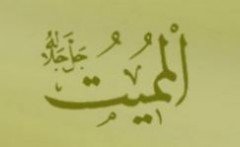 اَلْمُمِيتُ جَلَّ جَلَالُهُ